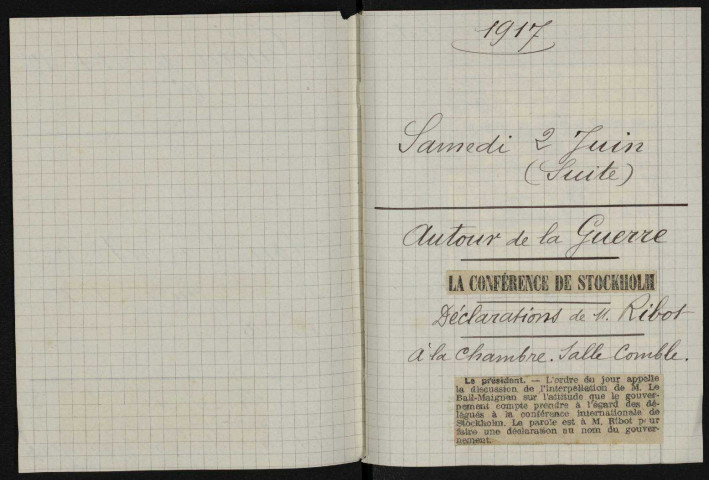 1917
Samedi 2 Juin
(Suite)
Autour de la Guerre
LA CONFÉRENCE DE STOCKHOLM
Déclarations de M. Ribot
à la Chambre. Salle Comble.
Le président. — L'ordre du jour appelle
la discussion de l'interpellation de M. Le
Bail-Maignan sur l'attitude que le gouver-
nement compte prendre à l'égard des dé-
légués à la conférence internationale de
Stockholm. La parole est à M. Ribot pour
faire une déclaration au nom du gouver-
nement.